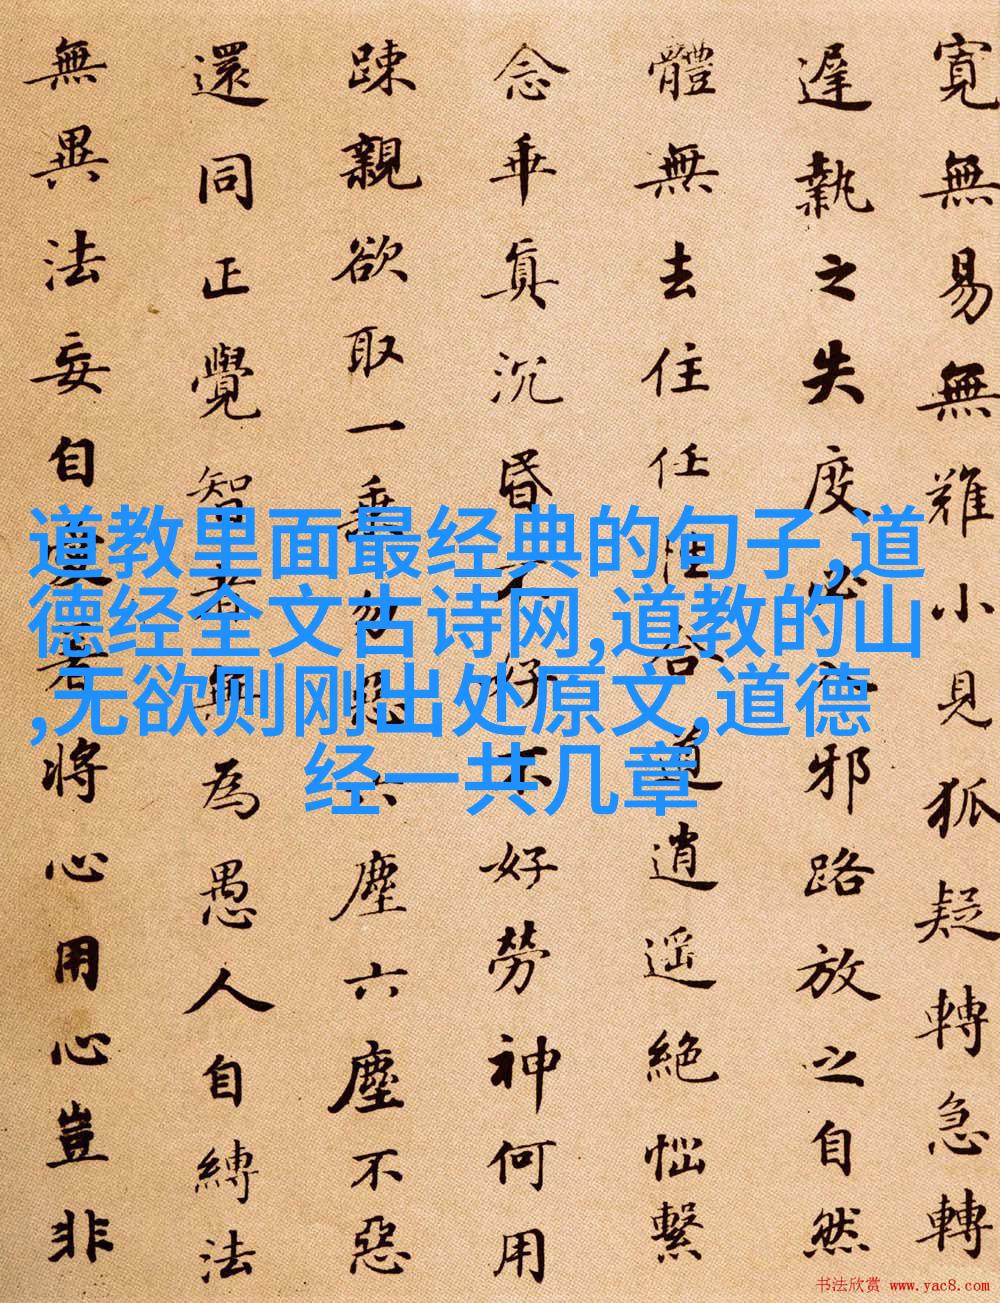 寬無易無難小見狐疑轉急轉
遲執之失度必入邪路放之自然
體無去住任性合道逍遥絶惱繫
念乖真沉昏不好不好勞神何用
踈親欲取一乘勿惡六塵六塵不惡
還同正覺智者無為愚人自縛法
無異法妄自愛著將心用心豈非
道教里面最经典的句子,道
德经全文古诗网,道教的山
,无欲则刚出处原文,道德
经一共几章
书法欣赏 www.yac8.com